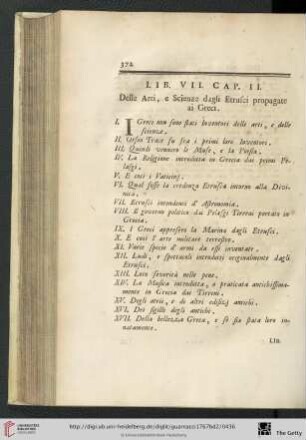 372
LIB. VII. CAP. II.
Delle Arti, e Scienze dagli Etrusci propagate
ai Greci.
I. I Greci non sono stati Inventori delle arti, e delle
scienze.
II. Orfeo Trace fu fra i primi loro Inventori.
III. Quindi vennero le Muse, e la Poesia.
IV. La Religione introdotta in Grecia dai primi Pelasgi.
V. E così i Vaticinj.
VI. Qual fosse la credenza Etrusca intorno alla Divinità.
VII. Etrusci intendenti d' Astronomia.
VIII. Il governo politico dai Pelasgi Tirreni portato in
Grecia.
IX. I Greci appresero la Marina dagli Etrusci.
X. E così l' arte militare terrestre.
XI. Varie specie d' armi da essi inventate.
XII. Ludi, e spettacoli introdotti originalmente dagli
Etrusci.
XIII. Loro severità nelle pene.
XIV. La Musica introdotta, e praticata antichissimamente
in Grecia dai Tirreni.
XV. Degli atrii, e di altri edifizj antichi.
XVI. Dei sigilli degli antichi.
XVII. Della bellezza Greca, e se sia stata loro innatamente.
LIB.
http://digi.ub.uni-heidelberg.de/diglit/guarnacci1767bd2/0436
© Universitätsbibliothek Heidelberg
The Getty